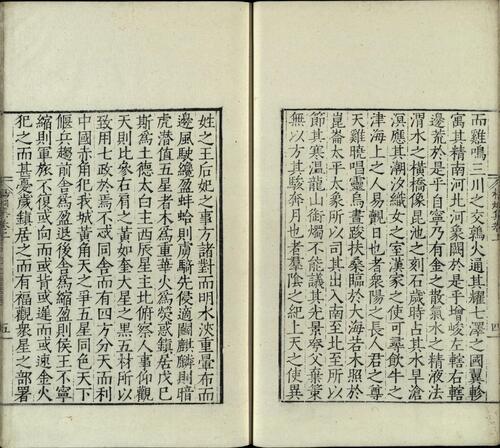 而雞鳴三川之交鶉火通其耀七澤之國翼軫
寓其精南河北河象闕於是乎增峻左轄右轄
邊荒於是乎自寧乃有金之散氣水之精液法
渭水之橫橋像昆池之刻石歲時占其水旱滄
溟應其潮汐織女之室漢家之使可尋飲牛之
津海上之人易觀日也者衆陽之長人君之尊
天雞曉唱靈烏晝踆扶桑臨於大海若木照於
崑崙太平太象所以司其出入南至北至所以
節其寒溫龍山銜燭不能議其光景夸父棄策
無以方其駿奔月也者羣陰之紀上天之使異
四
姓之王后妃之事方諸對而明水浹重暈布而
邊風駛纔盈蚌蛤則虜騎先侵適闕麒麟則暗
虎潛值五星者木為重華火為熒惑鎮居戊巳
斯為土德太白主西辰星主北俯察人事仰觀
天則比參右肩之黃如奎大星之黑五材所以
致用七政於焉不忒同舍而有四方分天而利
中國赤角犯我城黃角天之爭五星同色天下
偃兵趨前舍為盈退後舍為縮盈則侯王不寧
縮則軍旅不復或向而或背或遲而或速金火
犯之而甚憂歲鎮居之而有福觀衆星之部署
五